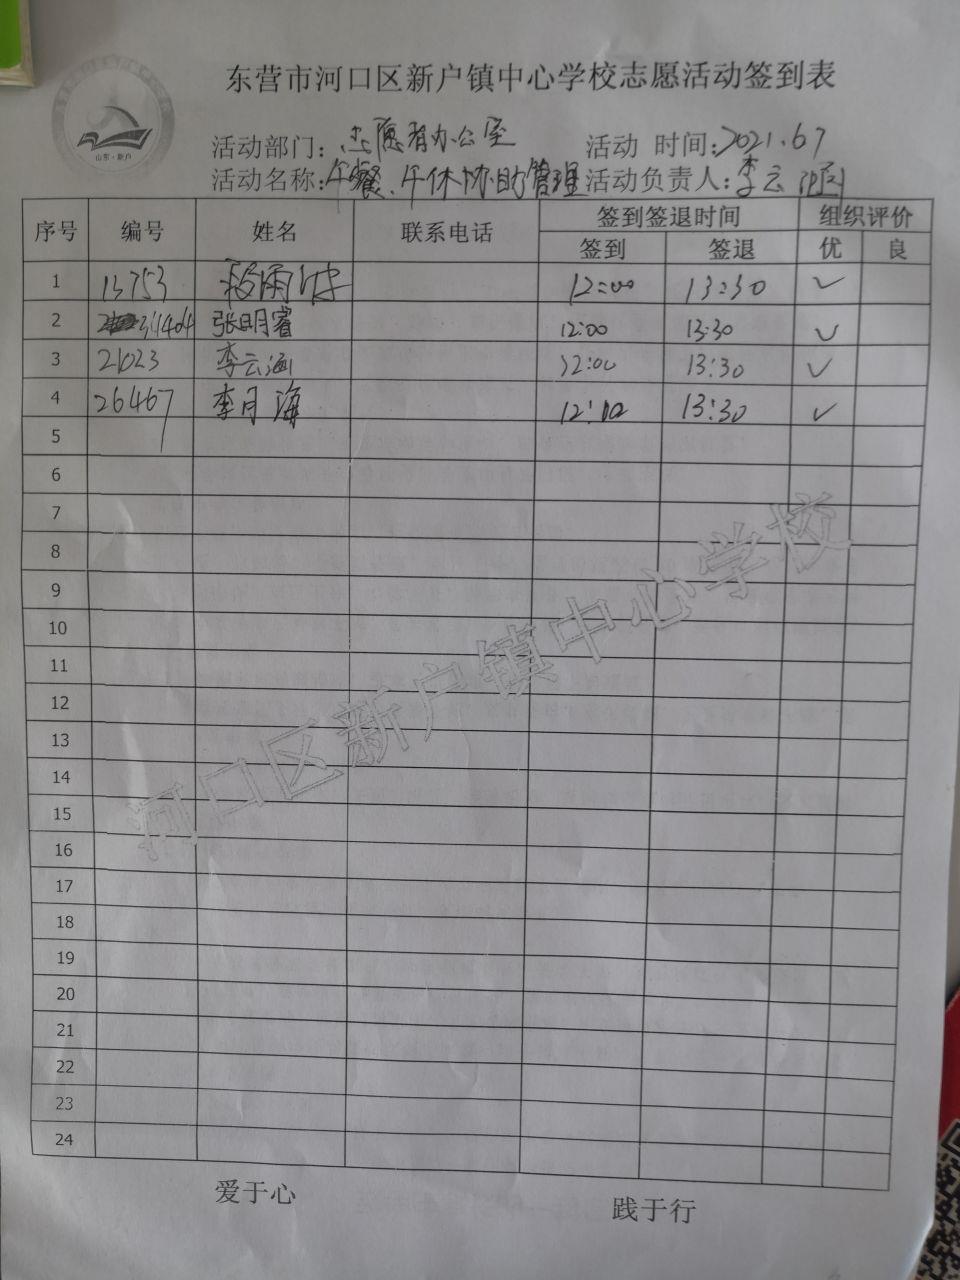 东营市河口区新户镇中心学校志愿活动签到表
山东·新户
活动部门：志愿者办公室 活动 时间：2021.6.7
活动名称：午餐、午休协助管理 活动负责人：李云涵
序号 编号 姓名 联系电话 签到签退时间 组织评价
签到 签退 优 良
1 13753 12:00 13:30 ✓
2 34404 张明睿 12:00 13:30 ✓
3 21023 李云涵 12:00 13:30 ✓
4 26467 李月海 13:30 ✓
5
6
7
8
9
10
11
12
13
14
15
16
17
18
19
20
21
22
23
24
河口区新户镇中心学校
爱于心 践于行